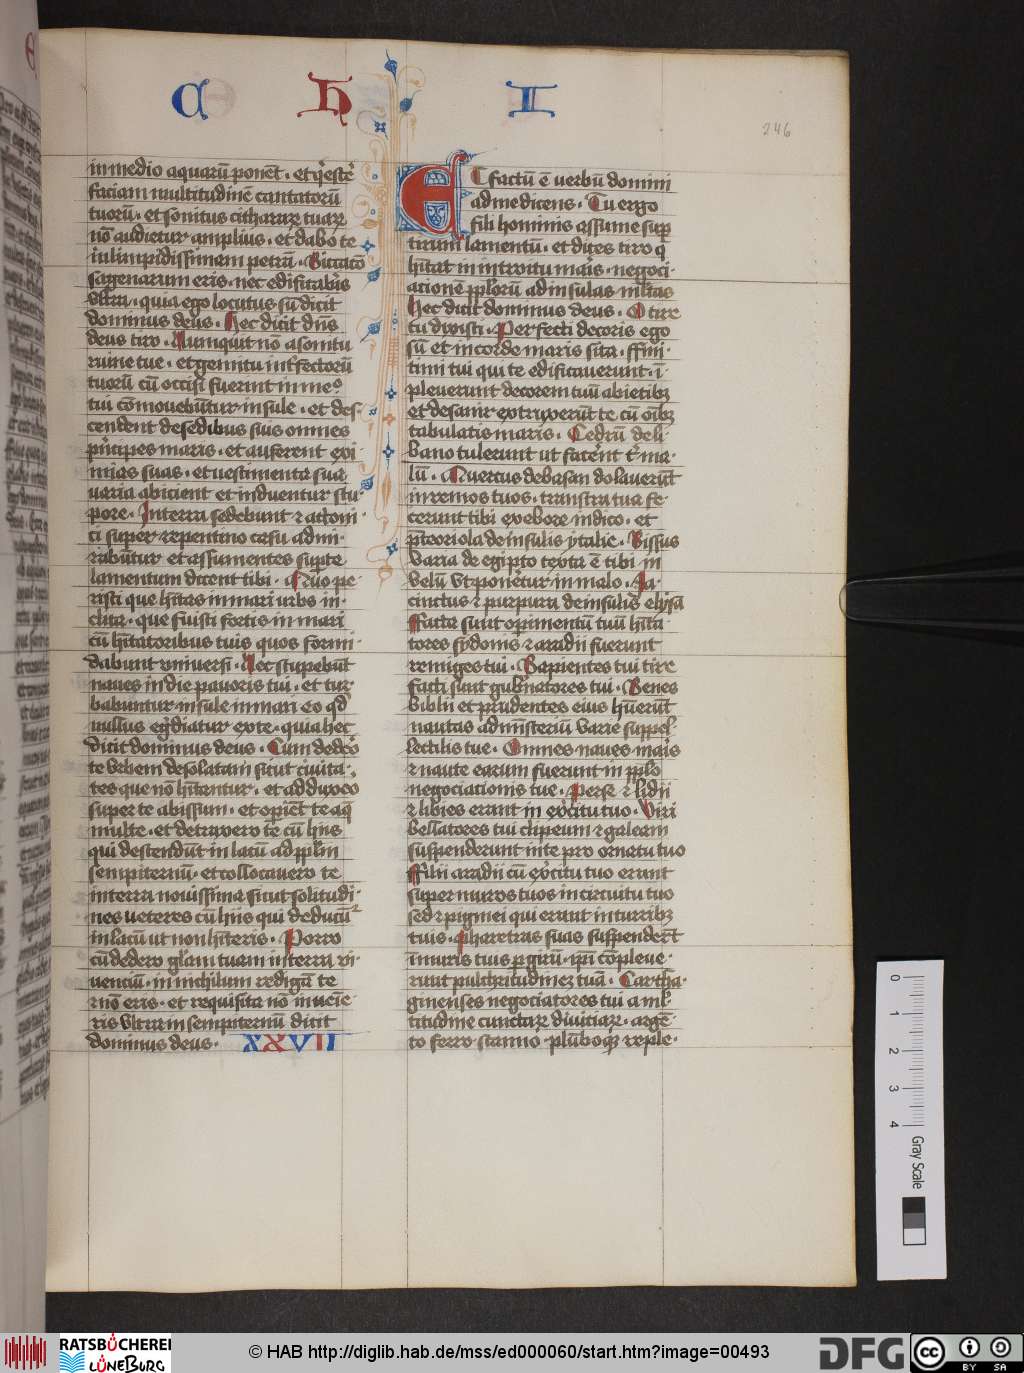 C H I
246
in medio aquarū ponent̄ . et q̇estē
faciam multitudinē cantatorū
tuorū . et sonitus citharaꝝ tuaꝝ
nō audietur amplius . et dabo te
ī limpidissimam petrā . Siccatō
sagenarum eris . nec edificab̄is
vltra . quia ego locutus sū dicit
dominus deus . Hec dicit dn̄s
deus tiro . Numquit nō a sonitu
ruine tue . et gemitu int̄fectorū
tuorū cū occisi fuerint in me
tui cōmovebūtur insule . et des
cendent de sedibus suis omnes
pͥncipes maris . et auferent exu
uias suas . et uestimenta sua
uaria abicient et induentur stu
pore . In terra sedebunt ⁊ attoni
ti super repentino casu admi
rabūtur et assumentes sup te
lamentum dicent tibi . Quō pe
risti que hītas in mari urbs in
clita . que fuisti fortis in mari
cū hītatoribus tuis quos formi
dabunt vniuersi . Nec stupebūt
naues in die pauoris tui . et tur
babuntur insule in mari eo qd̄
nullus eḡdiatur ex te . quia hec
dicit dominus deus . Cum dedeō
te vrbem desolatam sicut ciuita
tes que nō hītantur . et adduxeo
super te abissum . et opient̄ te aq̄
multe . et detraxero te cū hiis
qui descendūt in lacū ad pplm̄
sempiternū . et collocauero te
in terra nouissima sicut solitudi
nes ueteres cū hiis qui deducūt
in lacū ut non hīteris . Porro
cū dedero glām tuam in terra vi
uenciū . in nichilum redigā te
⁊ nō eris . et requisita nō inueīe
ris vltra in sempiternū dicit
dominus deus . XXVII
Et factū ē uerbū domini
ad me dicens . Tu ergo
fili hominis assume sup
tirum lamentū . et dices tiro q̄
hītat in introitu maīs . negoci
acione pploꝛū ad insulas m̄ltas
Hec dicit dominus deus . O tire
tu dixisti . Perfecti decoris ego
sū et in corde maris sita . ffini
timi tui qui te edificauerunt . ī
pleuerunt decorem tuū abietibꝫ
et de sanir extruxerūt te cū oībꝫ
tabulatis maris . Cedrū de li
bano tulerunt ut facēnt t̄ ma
lū . Quercus de basan dolauerūt
in remos tuos . transtra tua fe
cerunt tibi ex ebore indico . et
p̄teoriola de insulis ytalie . Bissus
varia de egipto texta ē tibi in
velū vt poneretur in malo . Ja
cinctus ⁊ purpura de insulis elysa
ffacta sunt operimentū tuū hīta
tores sydonis ⁊ aradii fuerunt
remiges tui . Sapientes tui tire
facti sunt gub̄natores tui . Senes
biblii et prudentes eius hūerūt
nautas ad mīsteriū varie suppel
lectilis tue . Omnes naues maīs
⁊ naute earum fuerunt in pplo
negociationis tue . Perse ⁊ lidii
⁊ libies erant in exͬcitu tuo . Viri
bellatores tui clipeum ⁊ galeam
suspenderunt in te pro ornatu tuo
ffilii aradii cū exͬcitu tuo erunt
super muros tuos in circuitu tuo
sed ⁊ pigmei qui erant in turribꝫ
tuis . Pharetras suas suspenderēt
ī muris tuis p girū . ip̄i cōpleue
runt pulchritudinez tuā . Cartha
ginenses negociatores tui a ml̄
titudine cunctaꝝ diuiciaꝝ . argē
to ferro stanno plūboqꝫ reple
0 1 2 3 4
Gray Scale
RATSBÜCHEREI
LÜNEBURG
© HAB http://diglib.hab.de/mss/ed000060/start.htm?image=00493
DFG
cc BY SA